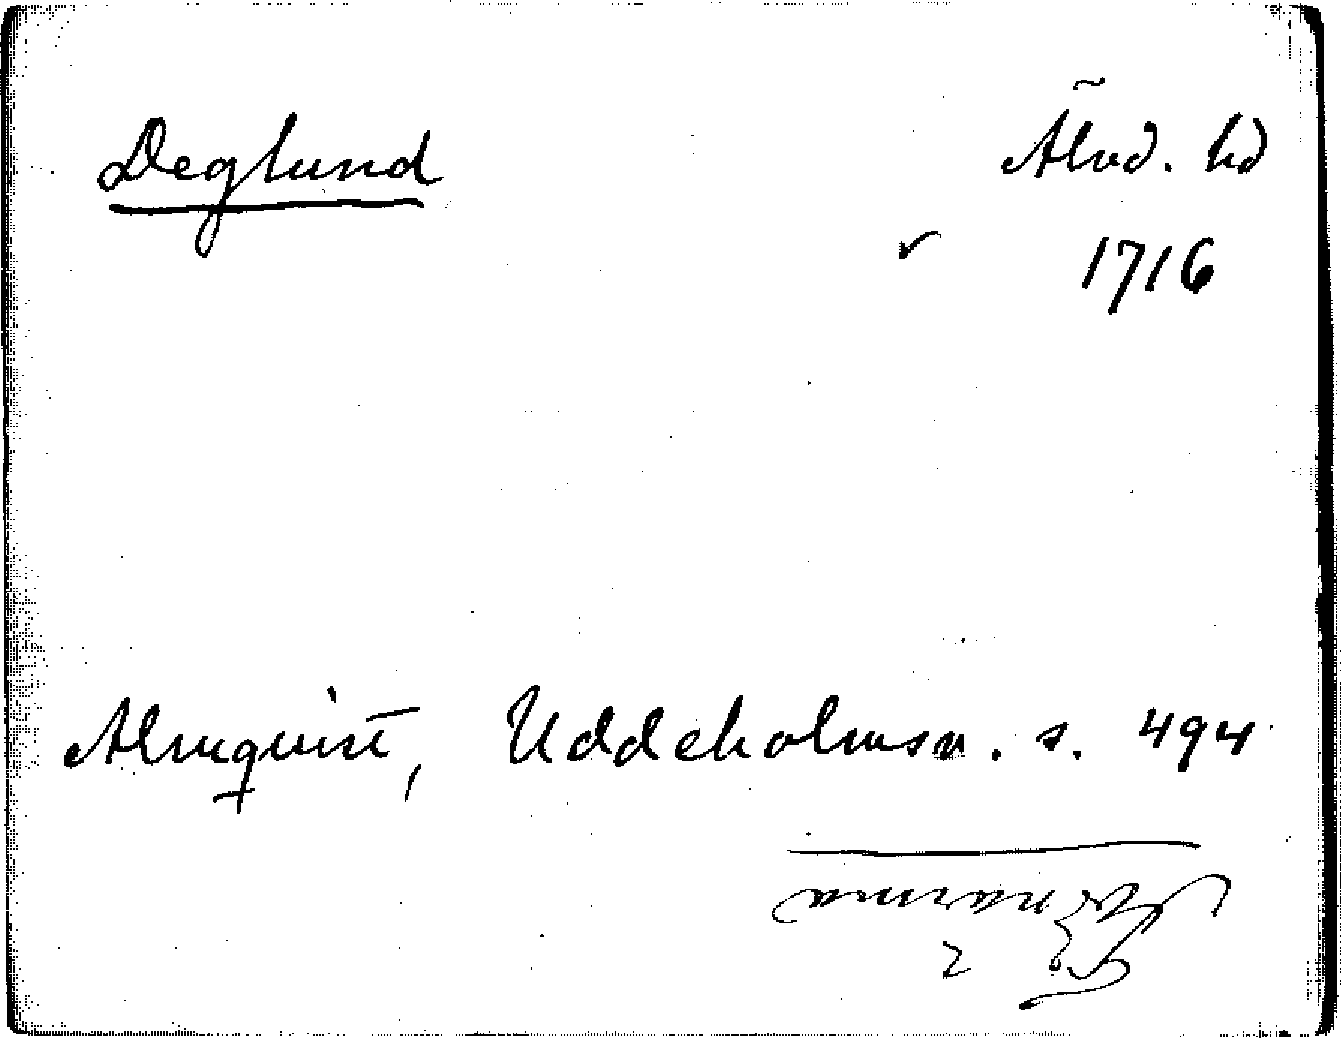 Deglund
Älvd. hd
1716
Almquist, Uddeholmsv. s. 494